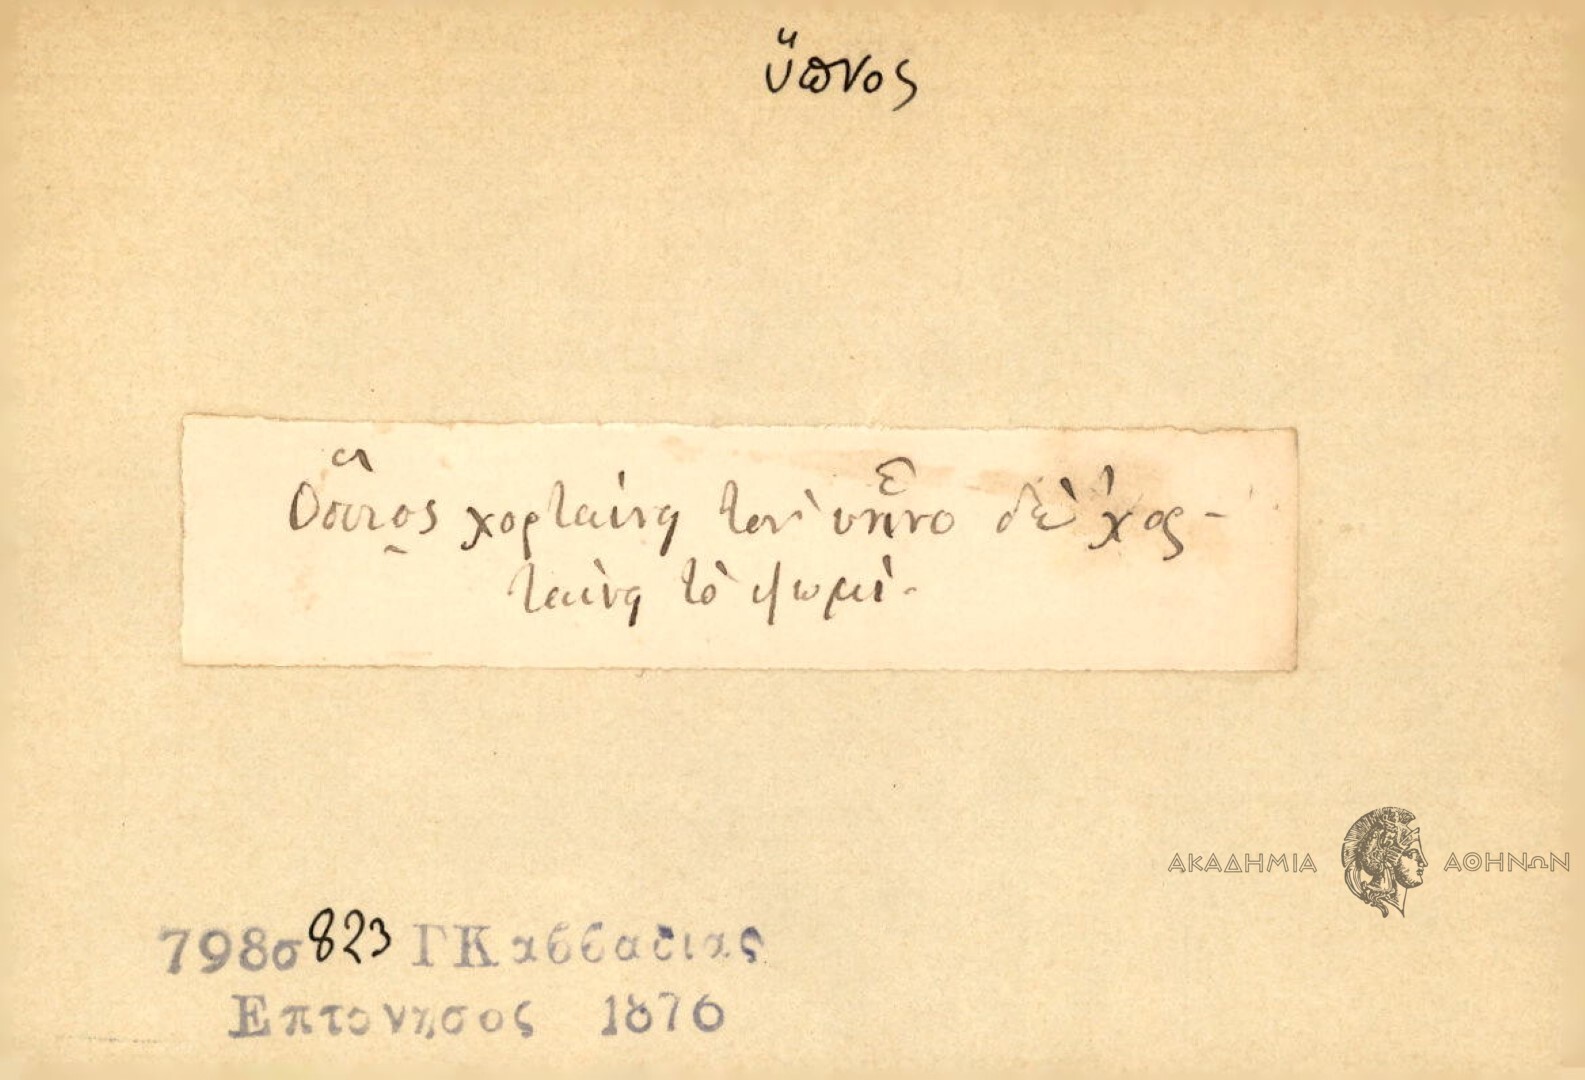 ὕπνος
Ὅσιος χορταίνῃ τὸν ὕπνο δὲ χορ-
ταίνῃ τὸ ψωμί.
ΑΚΑΔΗΜΙΑ ΑΘΗΝΩΝ
798σ 823 ΓΚαββαδιας
Επτανησος 1876